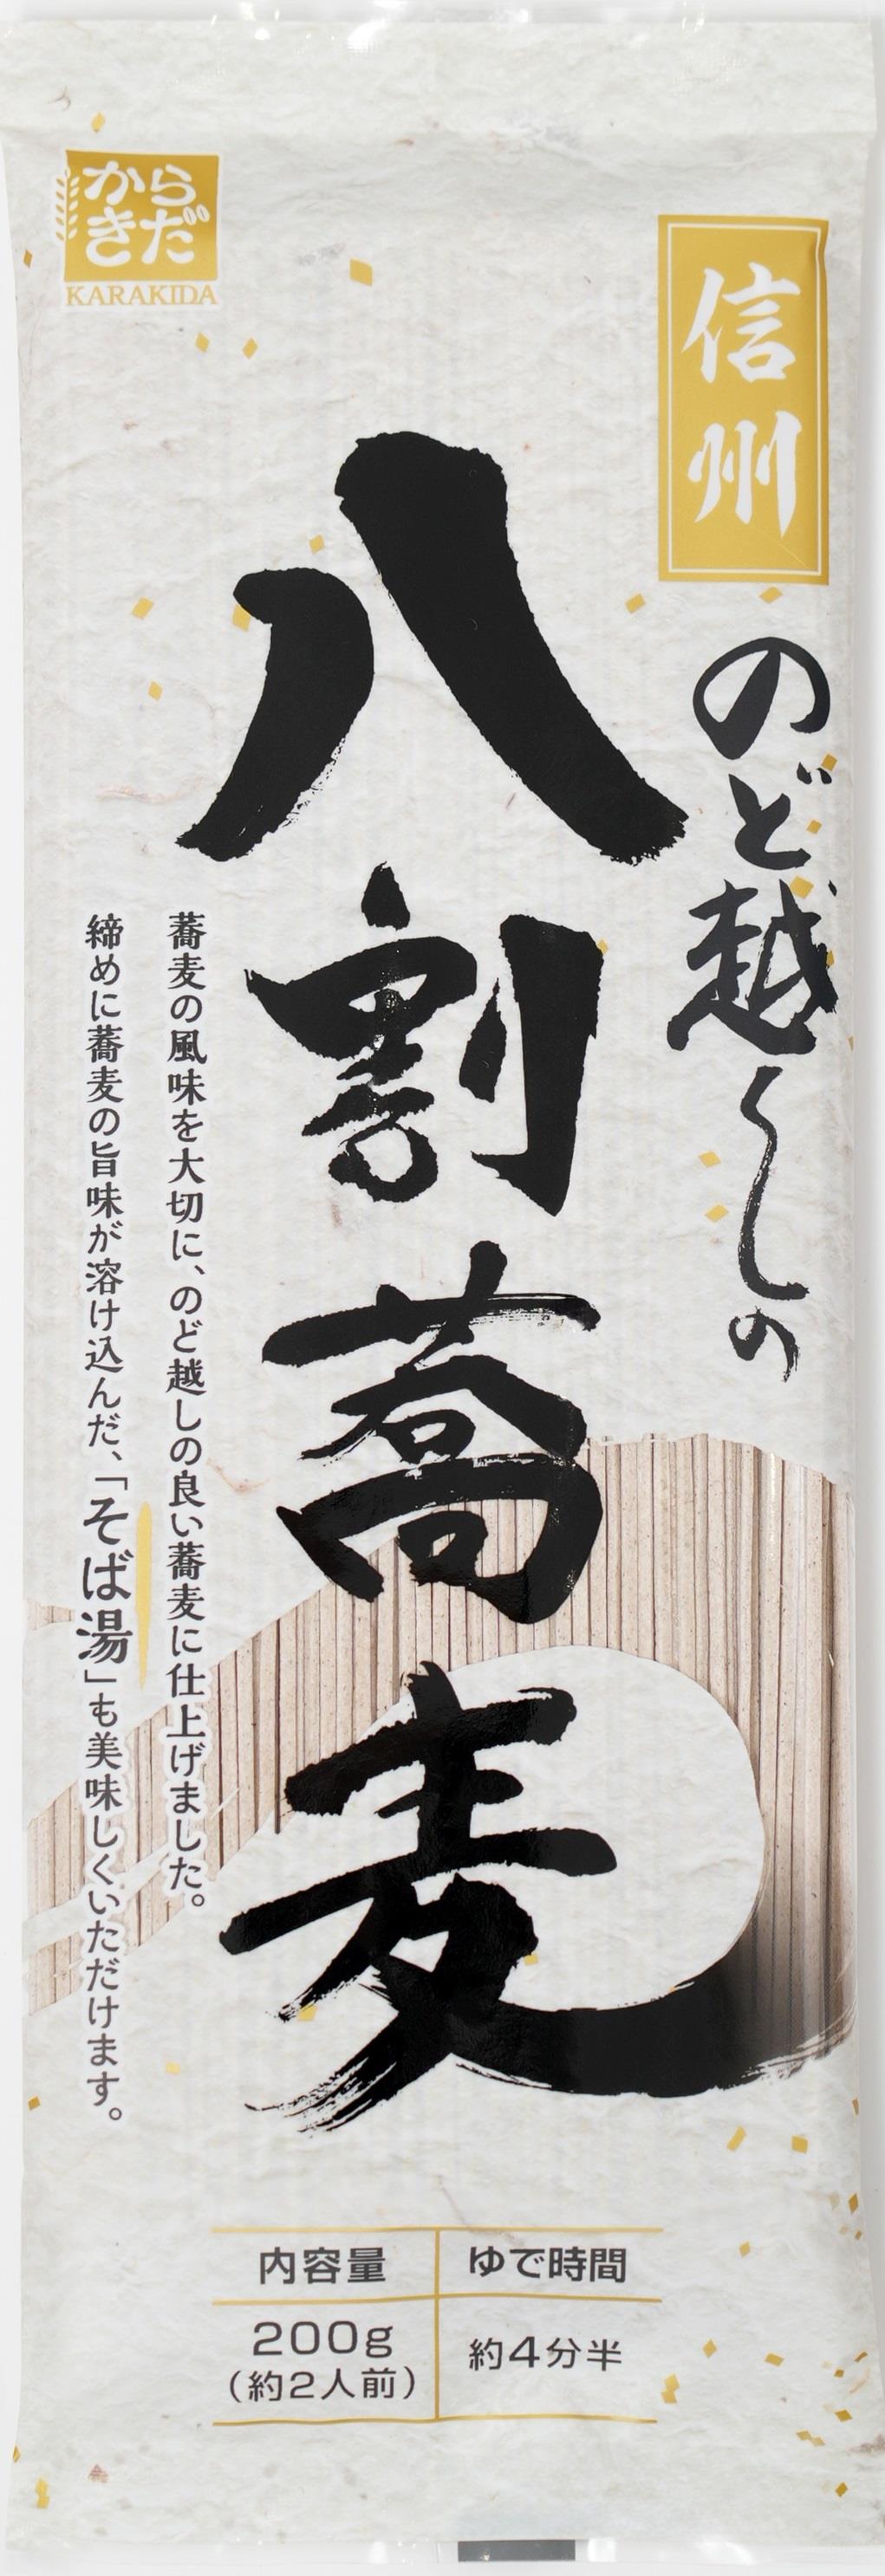 からきだ
KARAKIDA
信州
のど越しの
八割蕎麦
蕎麦の風味を大切に、のど越しの良い蕎麦に仕上げました。
締めに蕎麦の旨味が溶け込んだ、「そば湯」も美味しくいただけます。
内容量
ゆで時間
200g
(約2人前)
約4分半